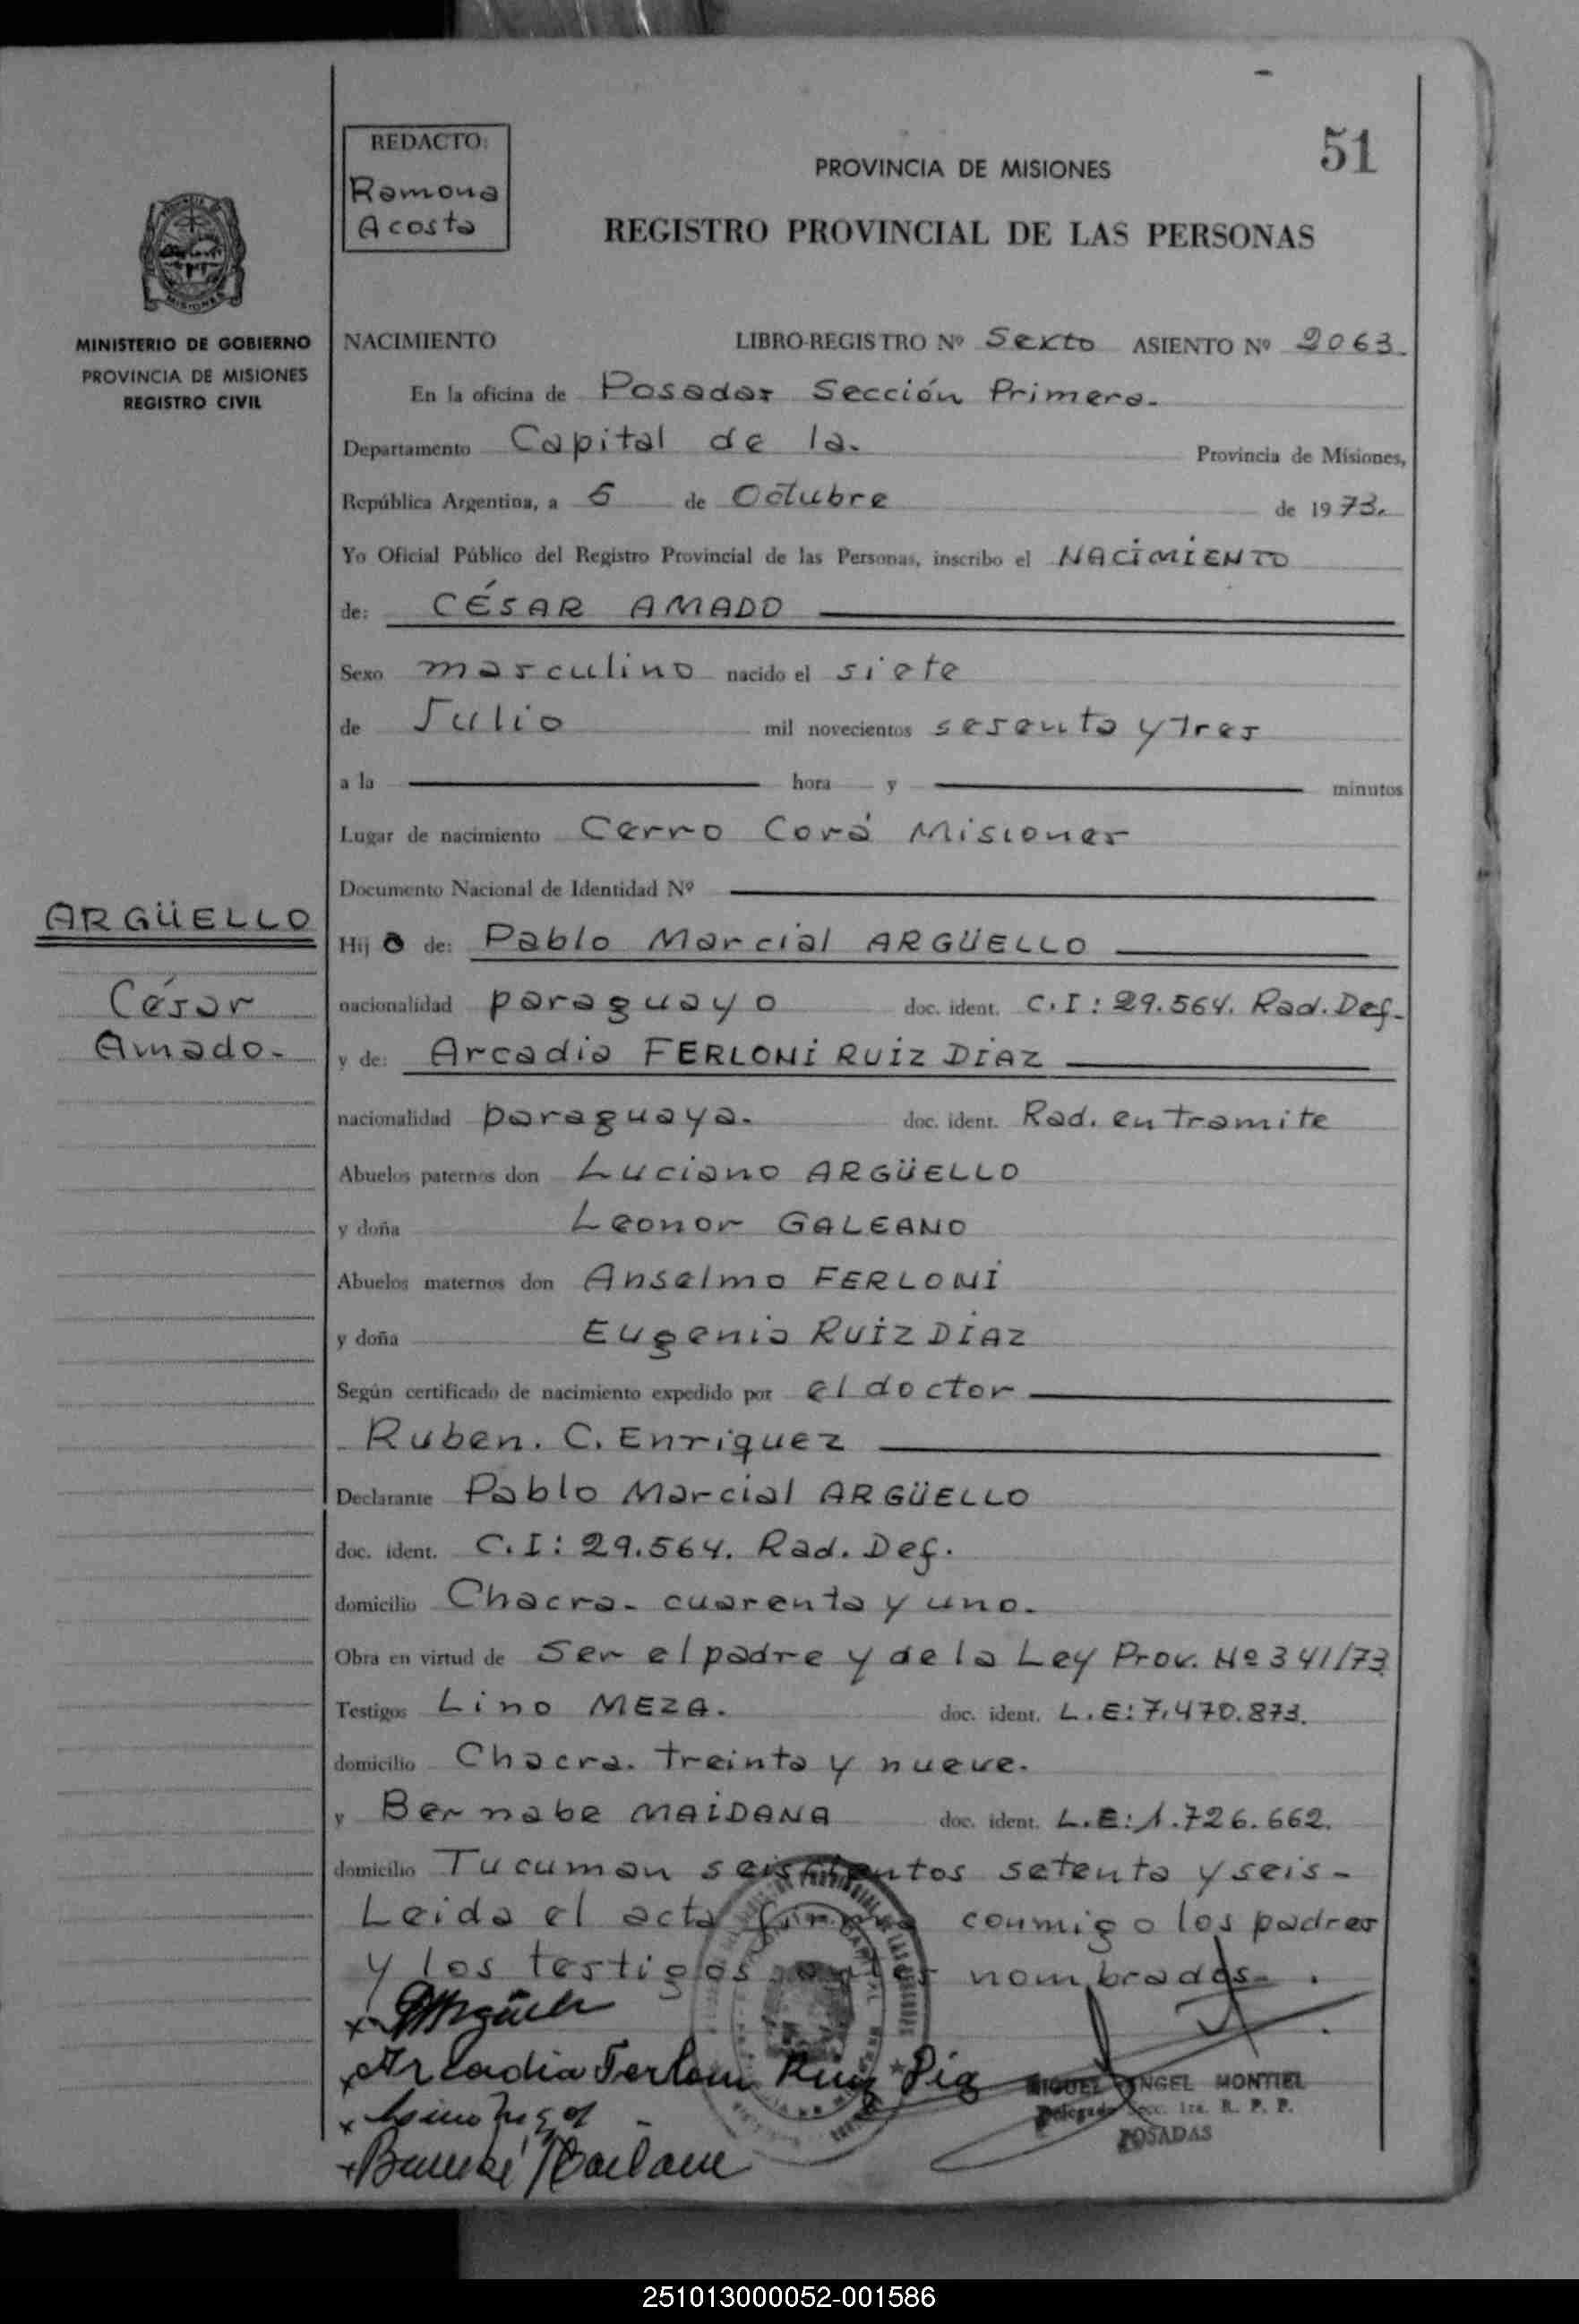 51
REDACTO:
Ramona
Acosta
PROVINCIA DE MISIONES
REGISTRO PROVINCIAL DE LAS PERSONAS
MISIONES
MINISTERIO DE GOBIERNO
PROVINCIA DE MISIONES
REGISTRO CIVIL
NACIMIENTO LIBRO-REGISTRO Nº Sexto ASIENTO Nº 2063.
En la oficina de Posadas Sección Primera.
Departamento Capital de la. Provincia de Misiones,
República Argentina, a 5 de Octubre de 1973.
Yo Oficial Público del Registro Provincial de las Personas, inscribo el NACIMIENTO
de: CÉSAR AMADO
Sexo masculino nacido el siete
de Julio mil novecientos sesenta y tres
a la hora y minutos
Lugar de nacimiento Cerro Corá Misiones
Documento Nacional de Identidad Nº
ARGÜELLO
César
Amado.
Hij o de: Pablo Marcial ARGÜELLO
nacionalidad paraguayo doc. ident. C.I: 29.564. Rad. Def.
y de: Arcadia FERLONI RUIZ DIAZ
nacionalidad paraguaya. doc. ident. Rad. en tramite
Abuelos paternos don Luciano ARGÜELLO
y doña Leonor GALEANO
Abuelos maternos don Anselmo FERLONI
y doña Eugenia RUIZ DIAZ
Según certificado de nacimiento expedido por el doctor
Ruben. C. Enriquez
Declarante Pablo Marcial ARGÜELLO
doc. ident. C.I: 29.564. Rad. Def.
domicilio Chacra. cuarenta y uno.
Obra en virtud de Ser el padre y de la Ley Prov. Nº 341/73
Testigos Lino MEZA. doc. ident. L.E: 7.470.873.
domicilio Chacra. treinta y nueve.
y Bernabe MAIDANA doc. ident. L.E: 1.726.662.
domicilio Tucuman seiscientos setenta y seis-
Leida el acta firman conmigo los padres
y los testigos antes nombrados.
Arcadia Ferloni Ruiz Diaz
MIGUEL ANGEL MONTIEL
Delegado Secc. 1ra. R. P. P.
POSADAS
251013000052-001586